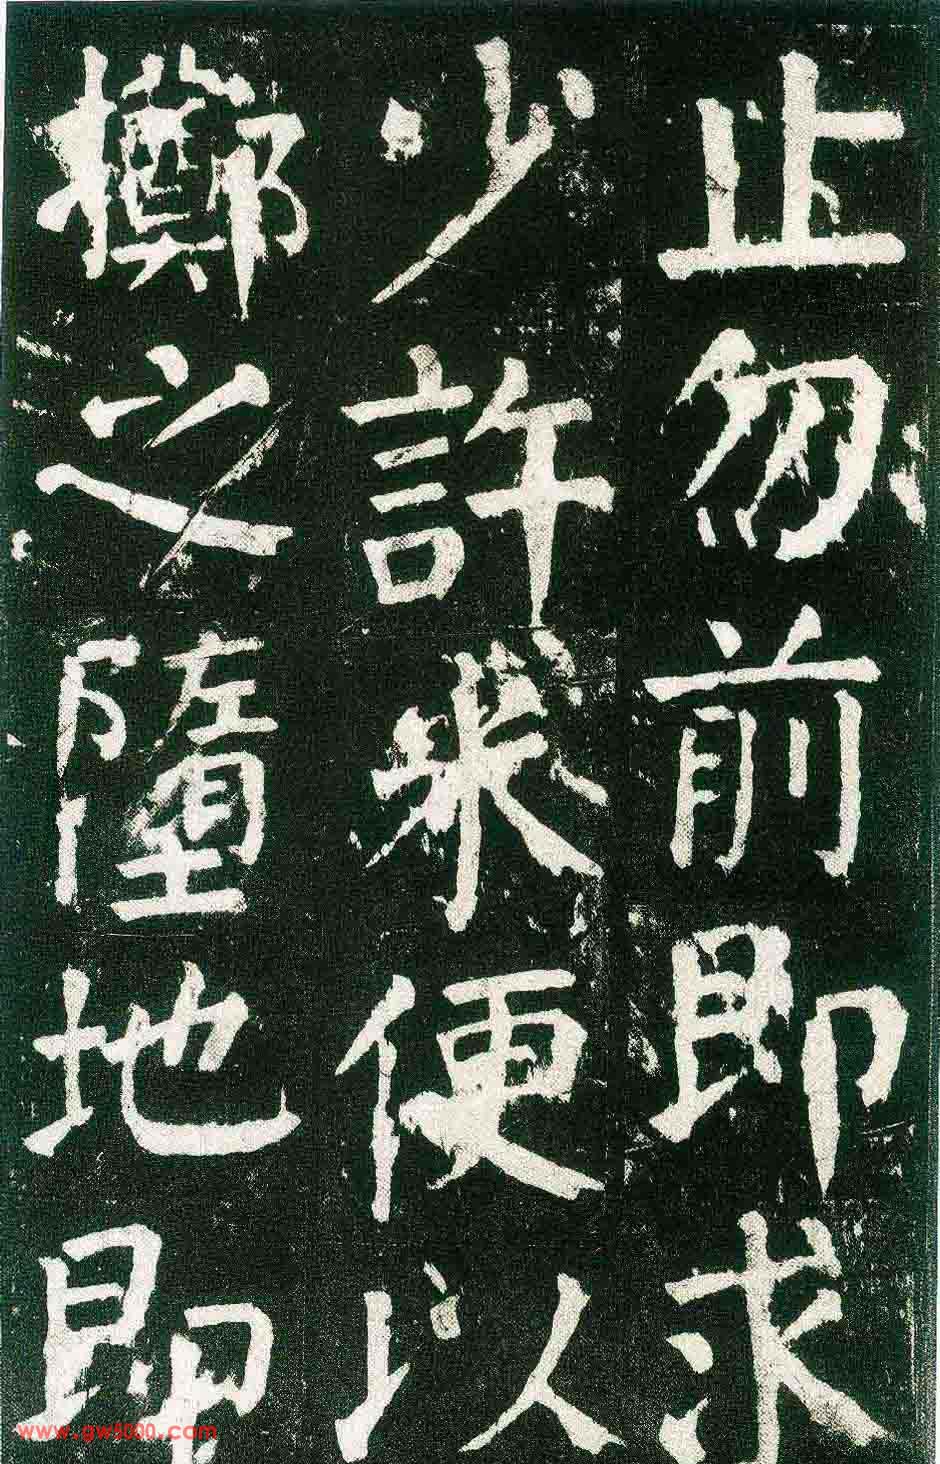 止勿前即求
少許米便以
擲之墮地即
www.gw5000.com